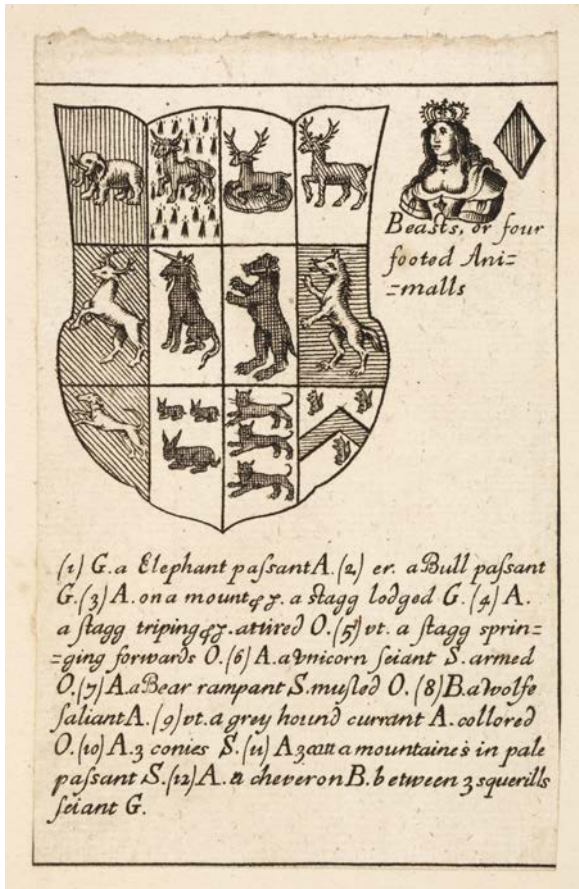 Beasts, or four
footed Ani=
=malls
(1) G. a Elephant paſsant A. (2) er. a Bull paſsant
G. (3) A. on a mount a ſtagg lodged G. (4) A.
a ſtagg triping attired O. (5) vt. a ſtagg sprin=
=ging forwards O. (6) A. a vnicorn ſeiant S. armed
O. (7) A. a Bear rampant S. muſled O. (8) B. a wolfe
ſaliant A. (9) vt. a grey hound currant A. collored
O. (10) A. 3 conies S. (11) A 3 a mountaines in pale
paſsant S. (12) A. a cheveron B. between 3 squerills
ſeiant G.